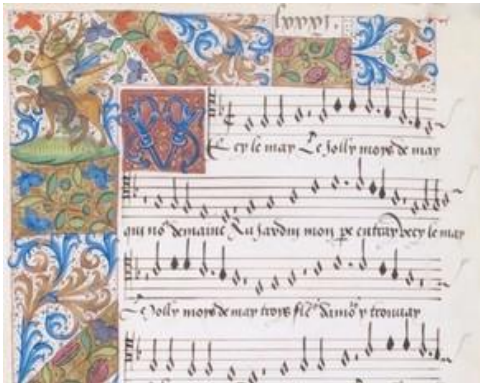 Vecy le may Le Jolly moys de may
qui no⁹ demaine Au Jardin mon pe entray vecy le may
Le Jolly moys de may troys y trouuay